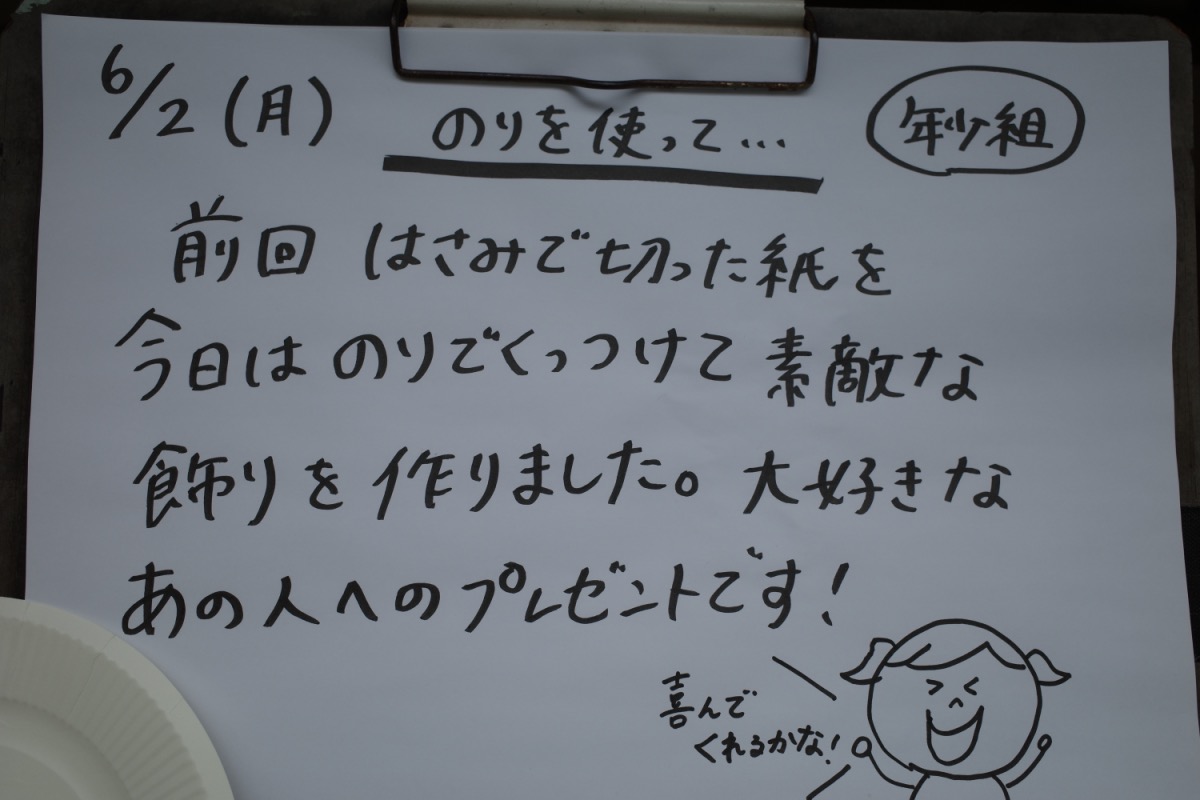 6/2(月) のりを使って… 年少組
前回 はさみで切った紙を
今日は のりでくっつけて 素敵な
飾りを 作りました。大好きな
あの人へのプレゼントです!
喜んで
くれるかな!